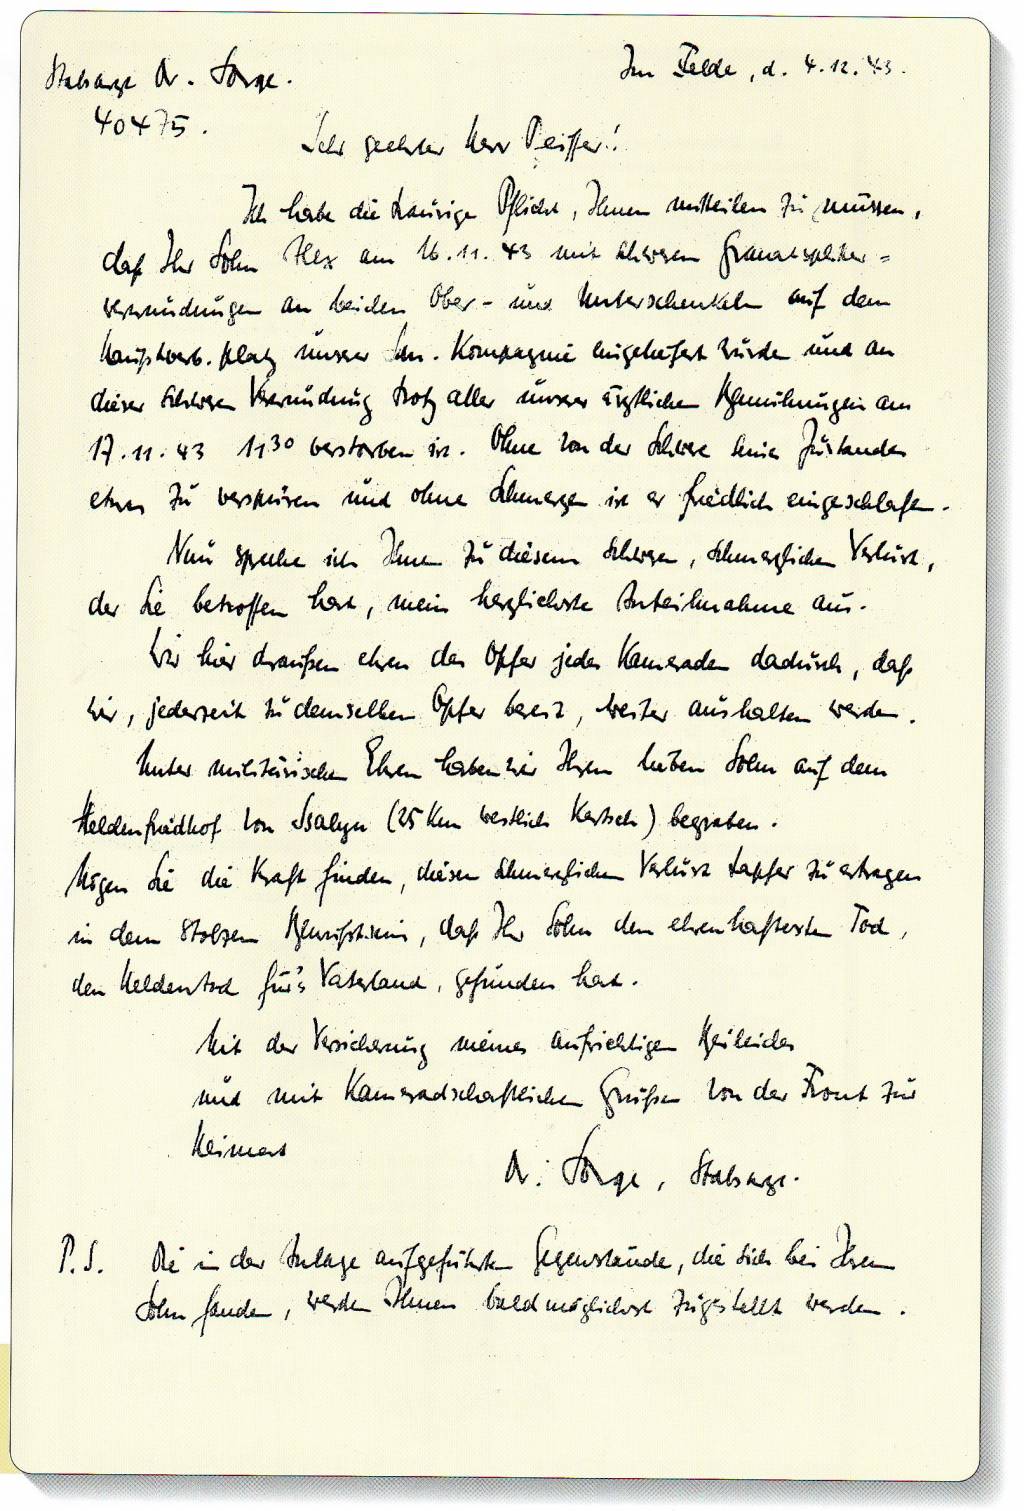 Stabsarzt Dr. Sorge.
Im Felde, d. 4.12.43.
40475.
Sehr geehrter Herr Peiffer!
Ich habe die traurige Pflicht, Ihnen mitteilen zu müssen,
daß Ihr Sohn Alex am 16.11.43 mit schweren Granatsplitter=
verwundungen an beiden Ober- und Unterschenkeln auf dem
Hauptverb.platz unserer San. Kompagnie eingeliefert wurde und an
dieser schweren Verwundung trotz aller unserer ärztlichen Bemühungen am
17.11.43 11³⁰ verstorben ist. Ohne von der Schwere seines Zustandes
etwas zu verspüren und ohne Schmerzen ist er friedlich eingeschlafen.
Nun spreche ich Ihnen zu diesem schweren, schmerzlichen Verlust,
der Sie betroffen hat, mein herzlichste Anteilnahme aus.
Wir hier draußen ehren das Opfer jedes Kameraden dadurch, daß
wir, jederzeit zu demselben Opfer bereit, weiter aushalten werden.
Unter militärischen Ehren haben wir Ihren lieben Sohn auf dem
Heldenfriedhof von Ssalyn (25 Km westlich Kertsch) begraben.
Mögen Sie die Kraft finden, diesen schmerzlichen Verlust tapfer zu ertragen
in dem stolzen Bewußtsein, daß Ihr Sohn den ehrenhaftesten Tod,
den Heldentod für's Vaterland, gefunden hat.
Mit der Versicherung meines aufrichtigen Beileides
und mit Kameradschaftlichen Grüßen von der Front zur
Heimat
Dr. Sorge, Stabsarzt.
P.S. Die in der Anlage aufgeführten Gegenstände, die sich bei Ihrem
Sohn fanden, werden Ihnen baldmöglichst zugestellt werden.